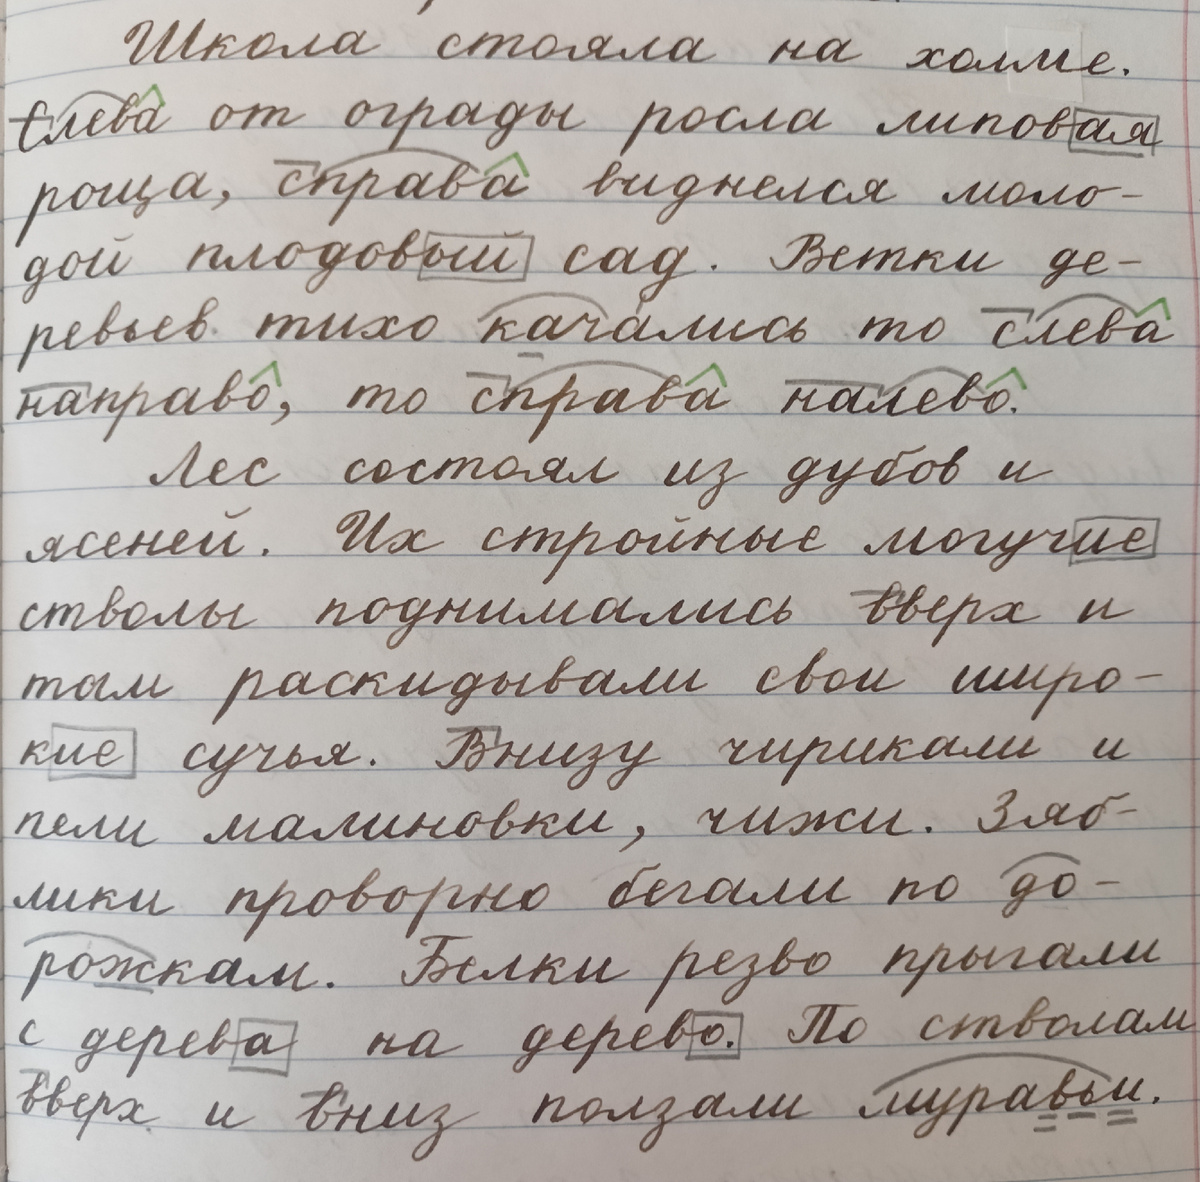 Школа стояла на холме.
Слева от ограды росла липовая
роща, справа виднелся моло-
дой плодовый сад. Ветки де-
ревьев тихо качались то слева
направо, то справа налево.
Лес состоял из дубов и
ясеней. Их стройные могучие
стволы поднимались вверх и
там раскидывали свои широ-
кие сучья. Внизу чирикали и
пели малиновки, чижи. Зяб-
лики проворно бегали по до-
рожкам. Белки резво прыгали
с дерева на дерево. По стволам
вверх и вниз ползали муравьи.